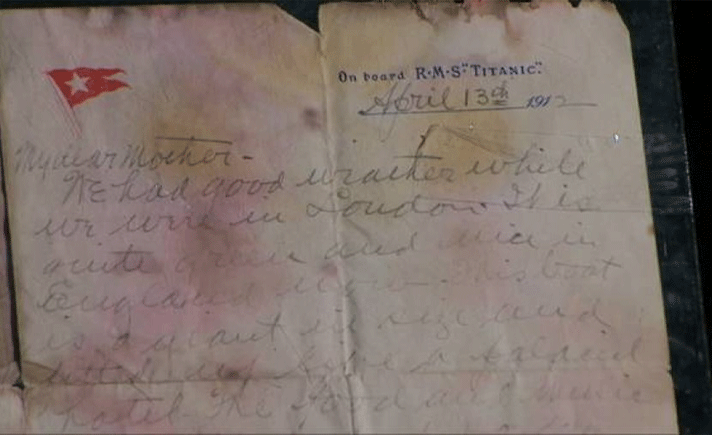 On board R·M·S "TITANIC".
April 13th 1912
My dear Mother-
We had good weather while
we were in London. It is
quite green and nice in
England now. This boat
is a giant in size and
fitted up like a palacial
hotel. The food and music